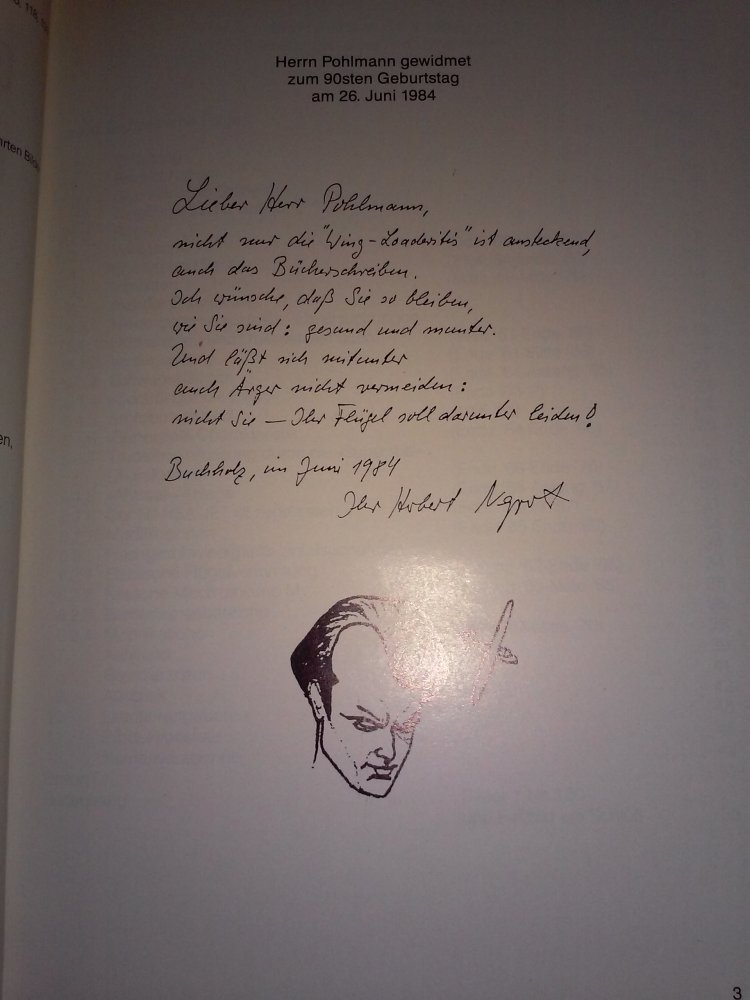 Herrn Pohlmann gewidmet
zum 90sten Geburtstag
am 26. Juni 1984
Lieber Herr Pohlmann,
nicht nur die "Wing-Loaderitis" ist ansteckend,
auch das Bücherschreiben.
Ich wünsche, daß Sie so bleiben,
wie Sie sind: gesund und munter.
Und läßt sich mitunter
auch Ärger nicht vermeiden:
nicht Sie — Ihr Flügel soll darunter leiden!
Buchholz, im Juni 1984
Ihr
3